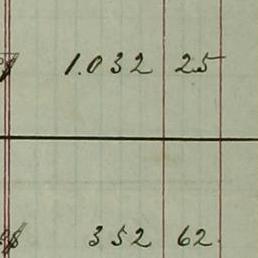 1.032 25
352 62